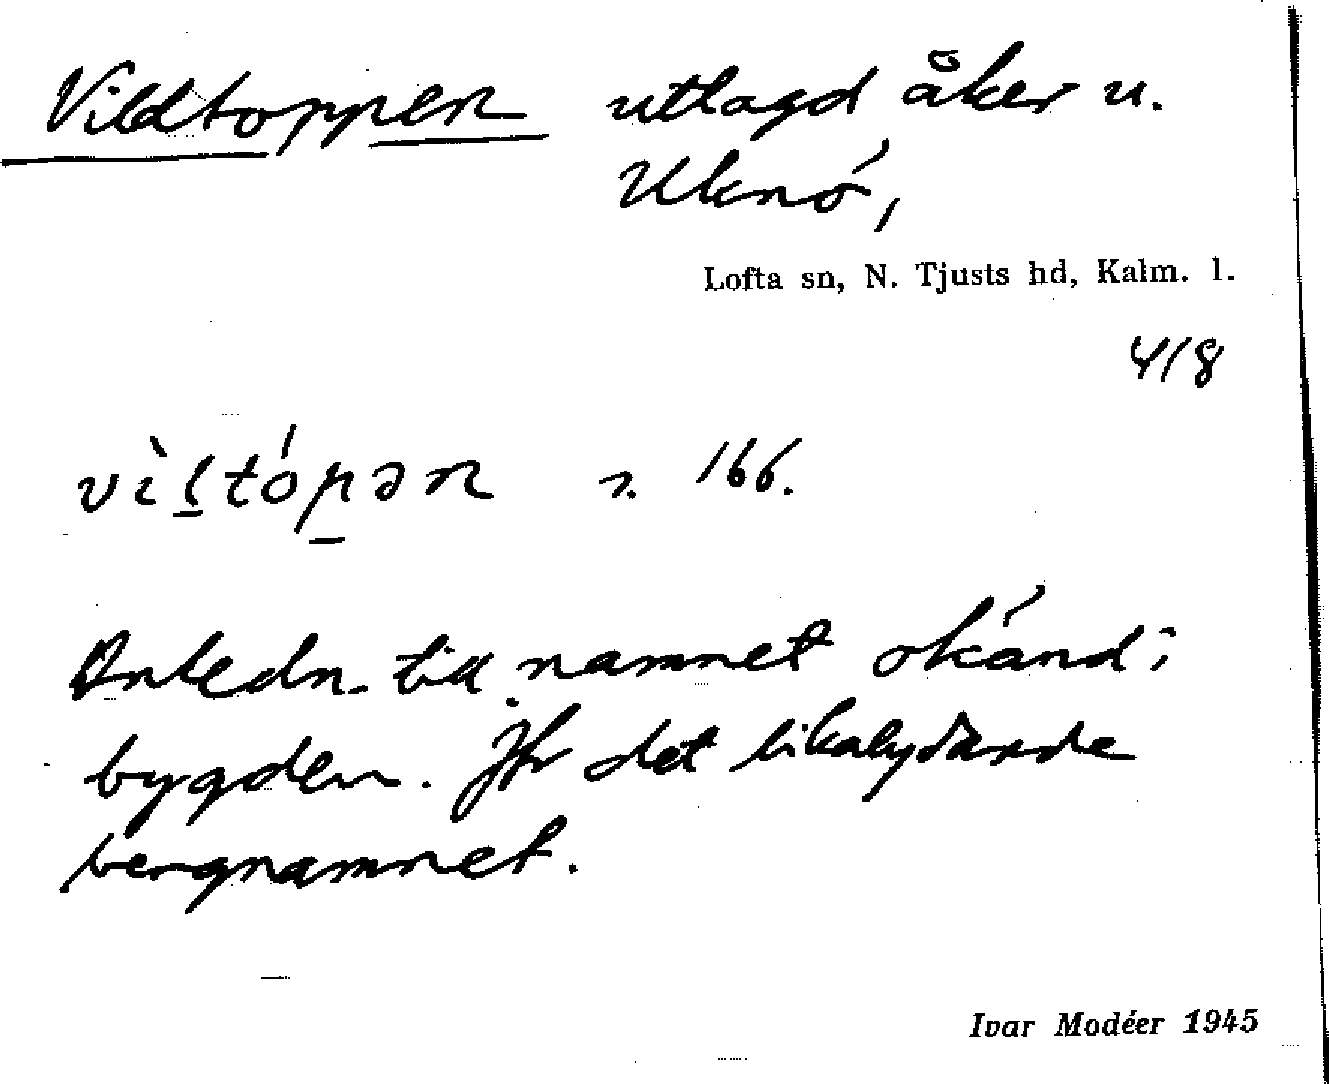 Vildtoppen utlagd åker u.
Uknö,
Lofta sn, N. Tjusts hd, Kalm. l.
4/8
vìl̠tóp̠ən n. 166.
Anledn. till namnet okänd i
bygden. Jfr det likalydande
bergnamnet.
Ivar Modéer 1945